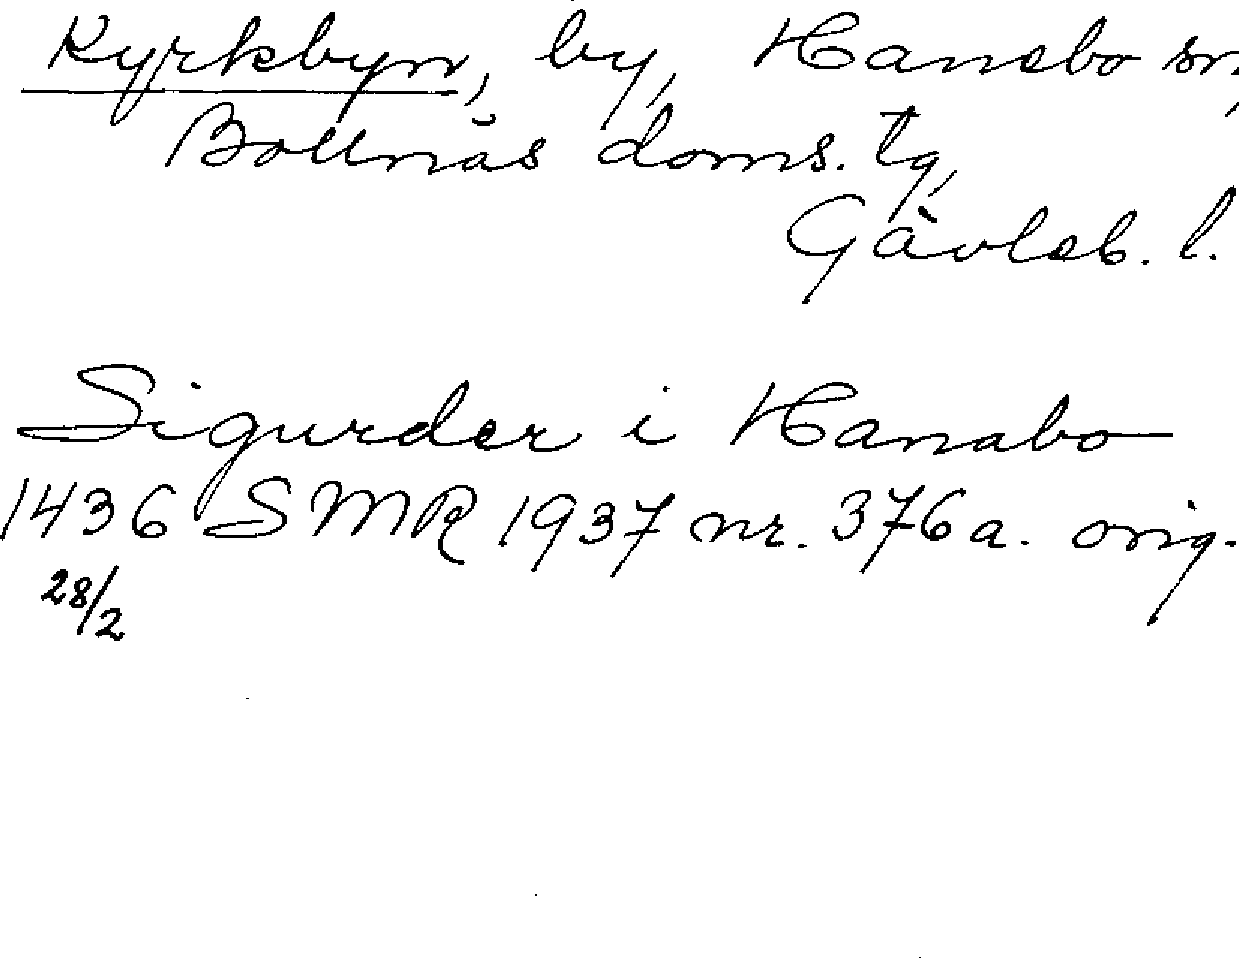 Kyrkbyn, by, Hanebo sn,
Bollnäs doms. tg,
Gävleb. l.
Sigurder i Hanabo
1436 SMR 1937 nr. 376a. orig.
28/2